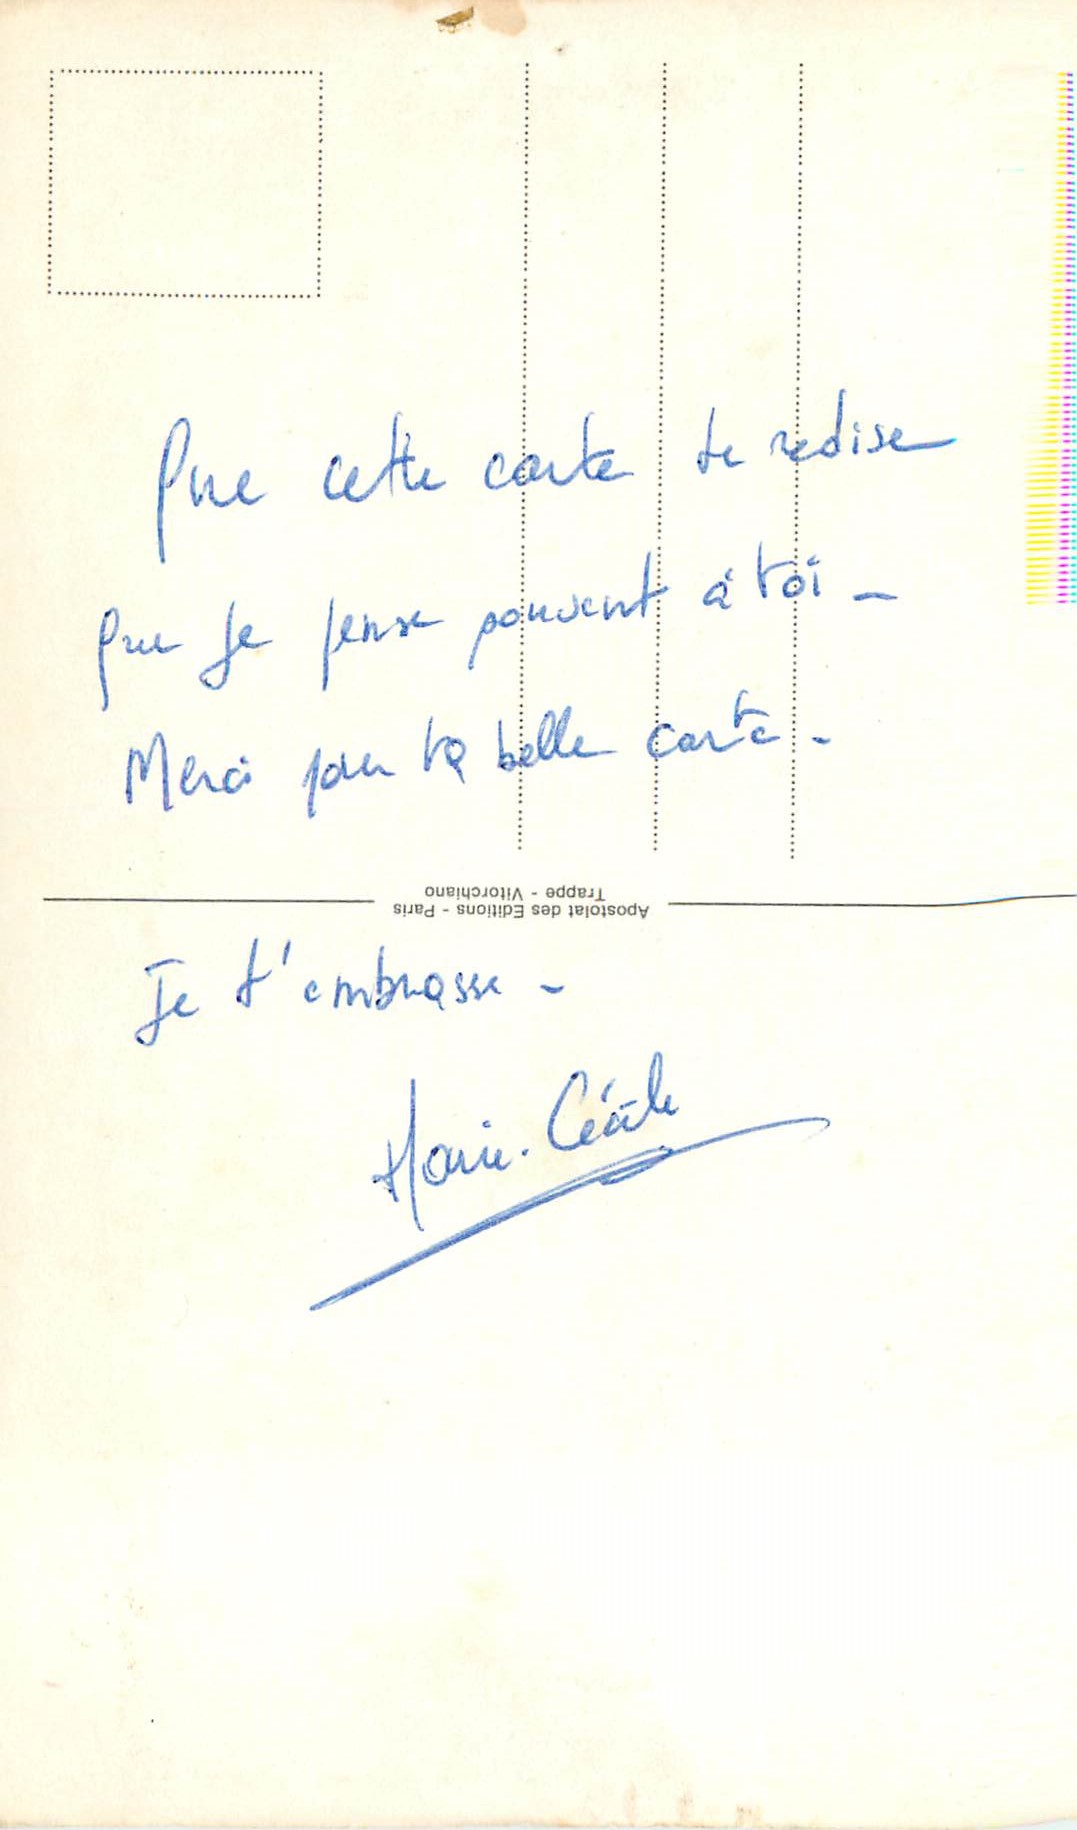 Que cette carte te redise
que je pense souvent à toi -
Merci pour ta belle carte -
Trappe - Vitorchiano
Apostolat des Editions - Paris
Je t'embrasse -
Marie-Cécile